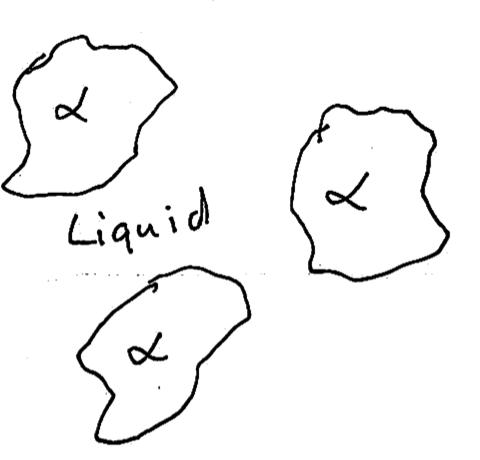 α
α
Liquid
α